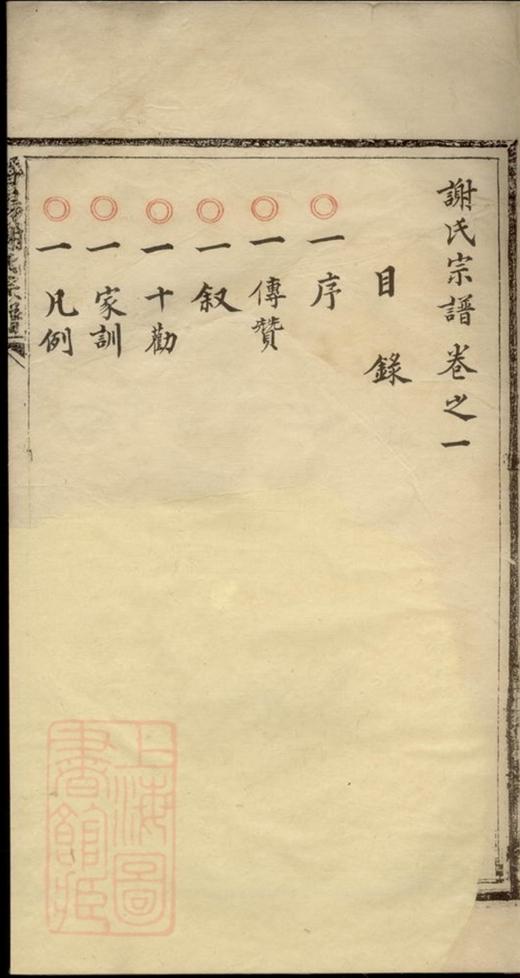 謝氏宗譜卷之一
目錄
一序
一傳贊
一叙
一十勸
一家訓
一凡例
上海圖
書館藏